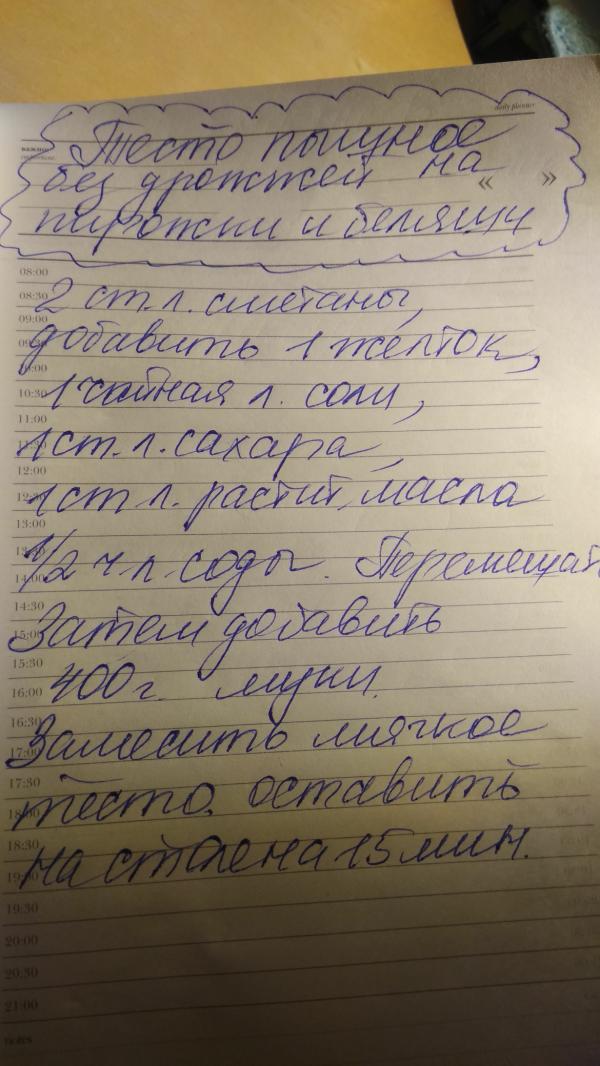 daily planner
важно:
Тесто пышное
без дрожжей на
« »
пирожки и беляши
08:00
08:30 2 ст.л. сметаны,
09:00
добавить 1 желток,
10:00
10:30 1 чайная л. соли,
11:00
1 ст.л. сахара,
12:00
1 ст л. растит. масла
13:00
1/2 ч.л. соды. Перемешать
14:00
14:30
15:00 Затем добавить
15:30
16:00 400 г. муки.
16:30
17:00 Замесить мягкое
17:30
18:00 тесто. оставить
18:30
19:00 на столе на 15 мин.
19:30
20:00
20:30
21:00
notes